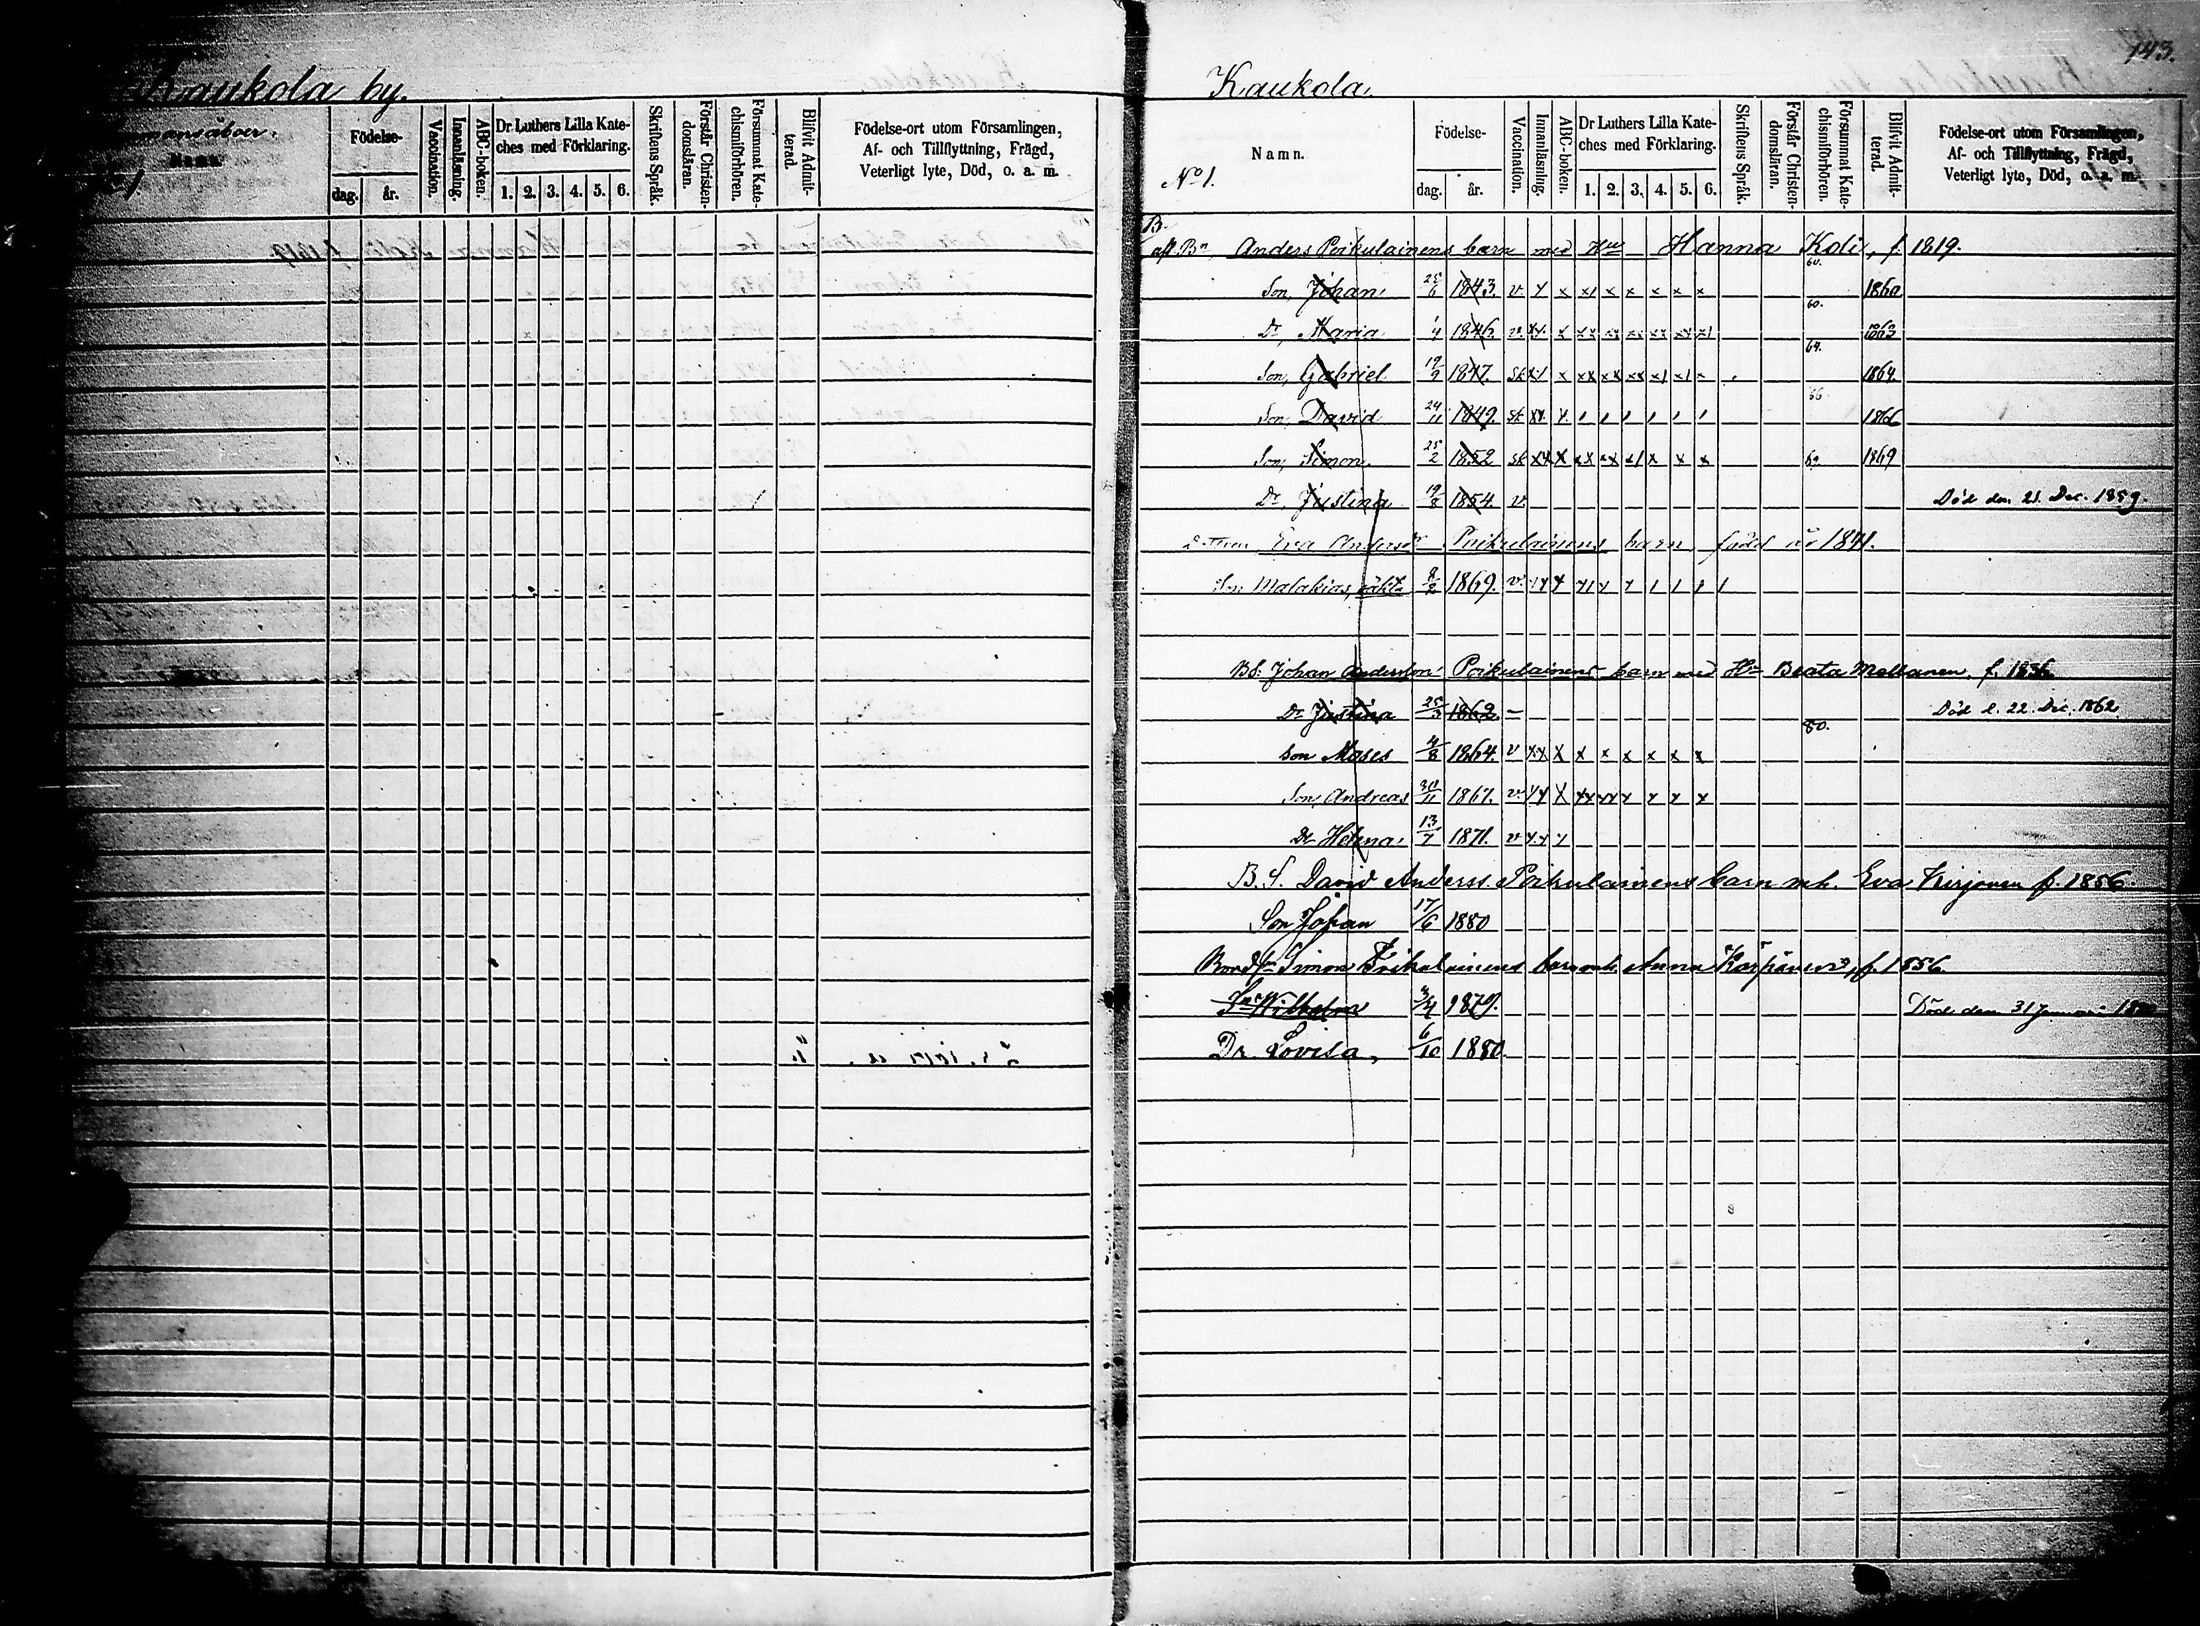 Kaukola by.
Namn.
Födelse-
dag. år.
Vaccination.
Innanläsning.
ABC-boken.
Dr Luthers Lilla Kate-
ches med Förklaring.
1. 2. 3. 4. 5. 6.
Skriftens Språk.
Förstår Christen-
domsläran.
Försummat Kate-
chismiförhören.
Blifvit Admit-
terad.
Födelse-ort utom Församlingen,
Af- och Tillflyttning, Frägd,
Veterligt lyte, Död, o. a. m.
143.
Kaukola.
No 1.
Namn.
Födelse-
dag. år.
Vaccination.
Innanläsning.
ABC-boken.
Dr Luthers Lilla Kate-
ches med Förklaring.
1. 2. 3. 4. 5. 6.
Skriftens Språk.
Förstår Christen-
domsläran.
Försummat Kate-
chismiförhören.
Blifvit Admit-
terad.
Födelse-ort utom Församlingen,
Af- och Tillflyttning, Frägd,
Veterligt lyte, Död, o. a. m.
B.
afl. Bn, Anders Poikulainens barn med Hu Hanna Koli, f. 1819.
Son, Johan 25/6 1843. v. 60. 1860
Dr, Maria 1/4 1846. v. 60. 1863
Son, Gabriel 19/9 1847. sk 64. 1864.
Son, David 24/11 1849. sk 66 1866
Son, Simon 25/2 1852 sk 69. 1869
Dr, Justina 19/8 1854. v. Död den 21. Dec. 1859.
Dottren Eva Andersdr Poikulainens barn, född år 1841.
Son Malakias, oäkta 8/2 1869. v.
BS. Johan Andersson Poikulainens barn med Hu Beata Mellanen, f. 1836
Dr Justina 25/3 1862. Död d. 22. Dec. 1862.
Son Moses 4/8 1864. v 80.
Son, Andreas 30/11 1867. v.
Dr Helena, 13/7 1871. v
B. S. David Anderss. Poikulainens barn mh. Eva Kirjonen f. 1856.
Son Johan 17/6 1880
Simon Poikulainens barn mh. Anna f. 1856.
Wilhelm 3/4 1879. Död den 31 Januari
Dr. Lovisa, 6/10 1880.